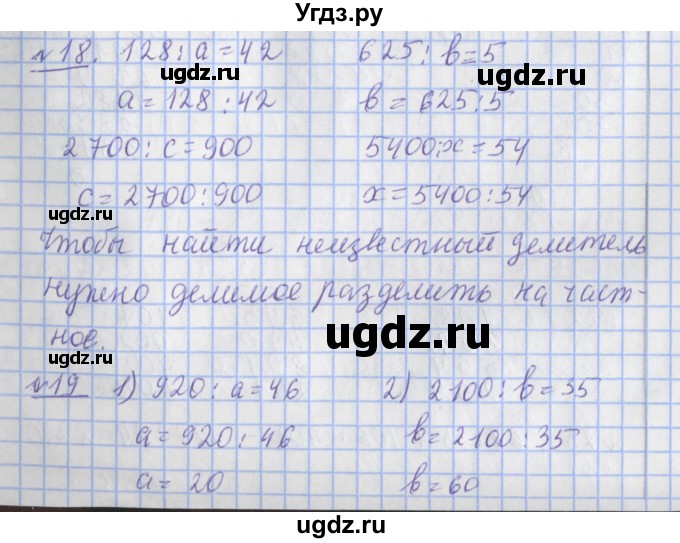 Угдз.ру
№18. 128 : а = 42 625 : в = 5
ugdz.ru ugdz.ru
а = 128 : 42 в = 625 : 5
2700 : с = 900 5400 : х = 54
с = 2700 : 900 х = 5400 : 54
ugdz.ru ugdz.ru
Чтобы найти неизвестный делитель
нужно делимое разделить на част-
ugdz.ru
ное.
ugdz.ru ugdz.ru
№19 1) 920 : а = 46 2) 2100 : в = 35
а = 920 : 46 в = 2100 : 35
а = 20 в = 60
ugdz.ru ugdz.ru
ugdz.ru